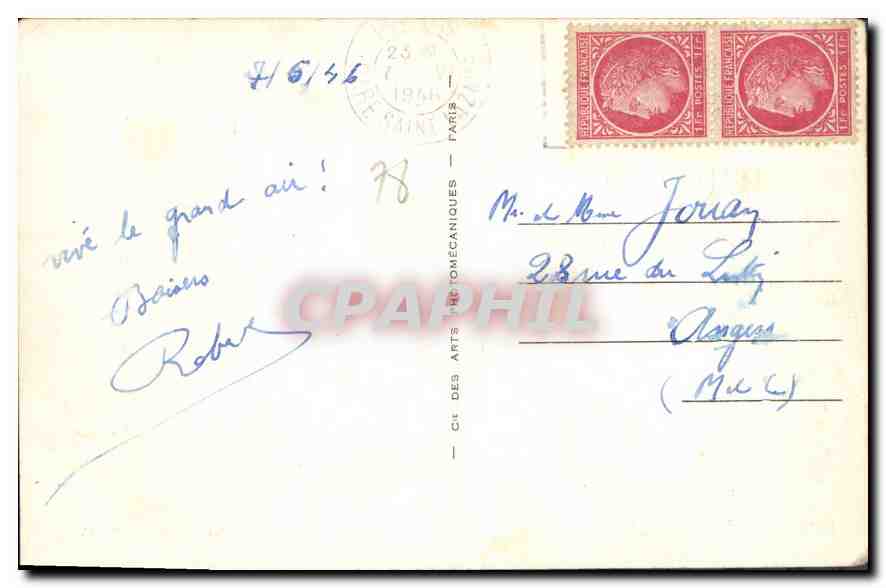 7/6/46
23
1946
SAINT
RÉPUBLIQUE FRANÇAISE
1 Fr POSTES 1 Fr
RÉPUBLIQUE FRANÇAISE
1 Fr POSTES 1 Fr
78
vivé le grand air !
Baisers
Robert
— Cie DES ARTS PHOTOMÉCANIQUES — PARIS —
Mr. et Mme Jouay
28 rue du
Angers
(M et L)
CPAPHIL